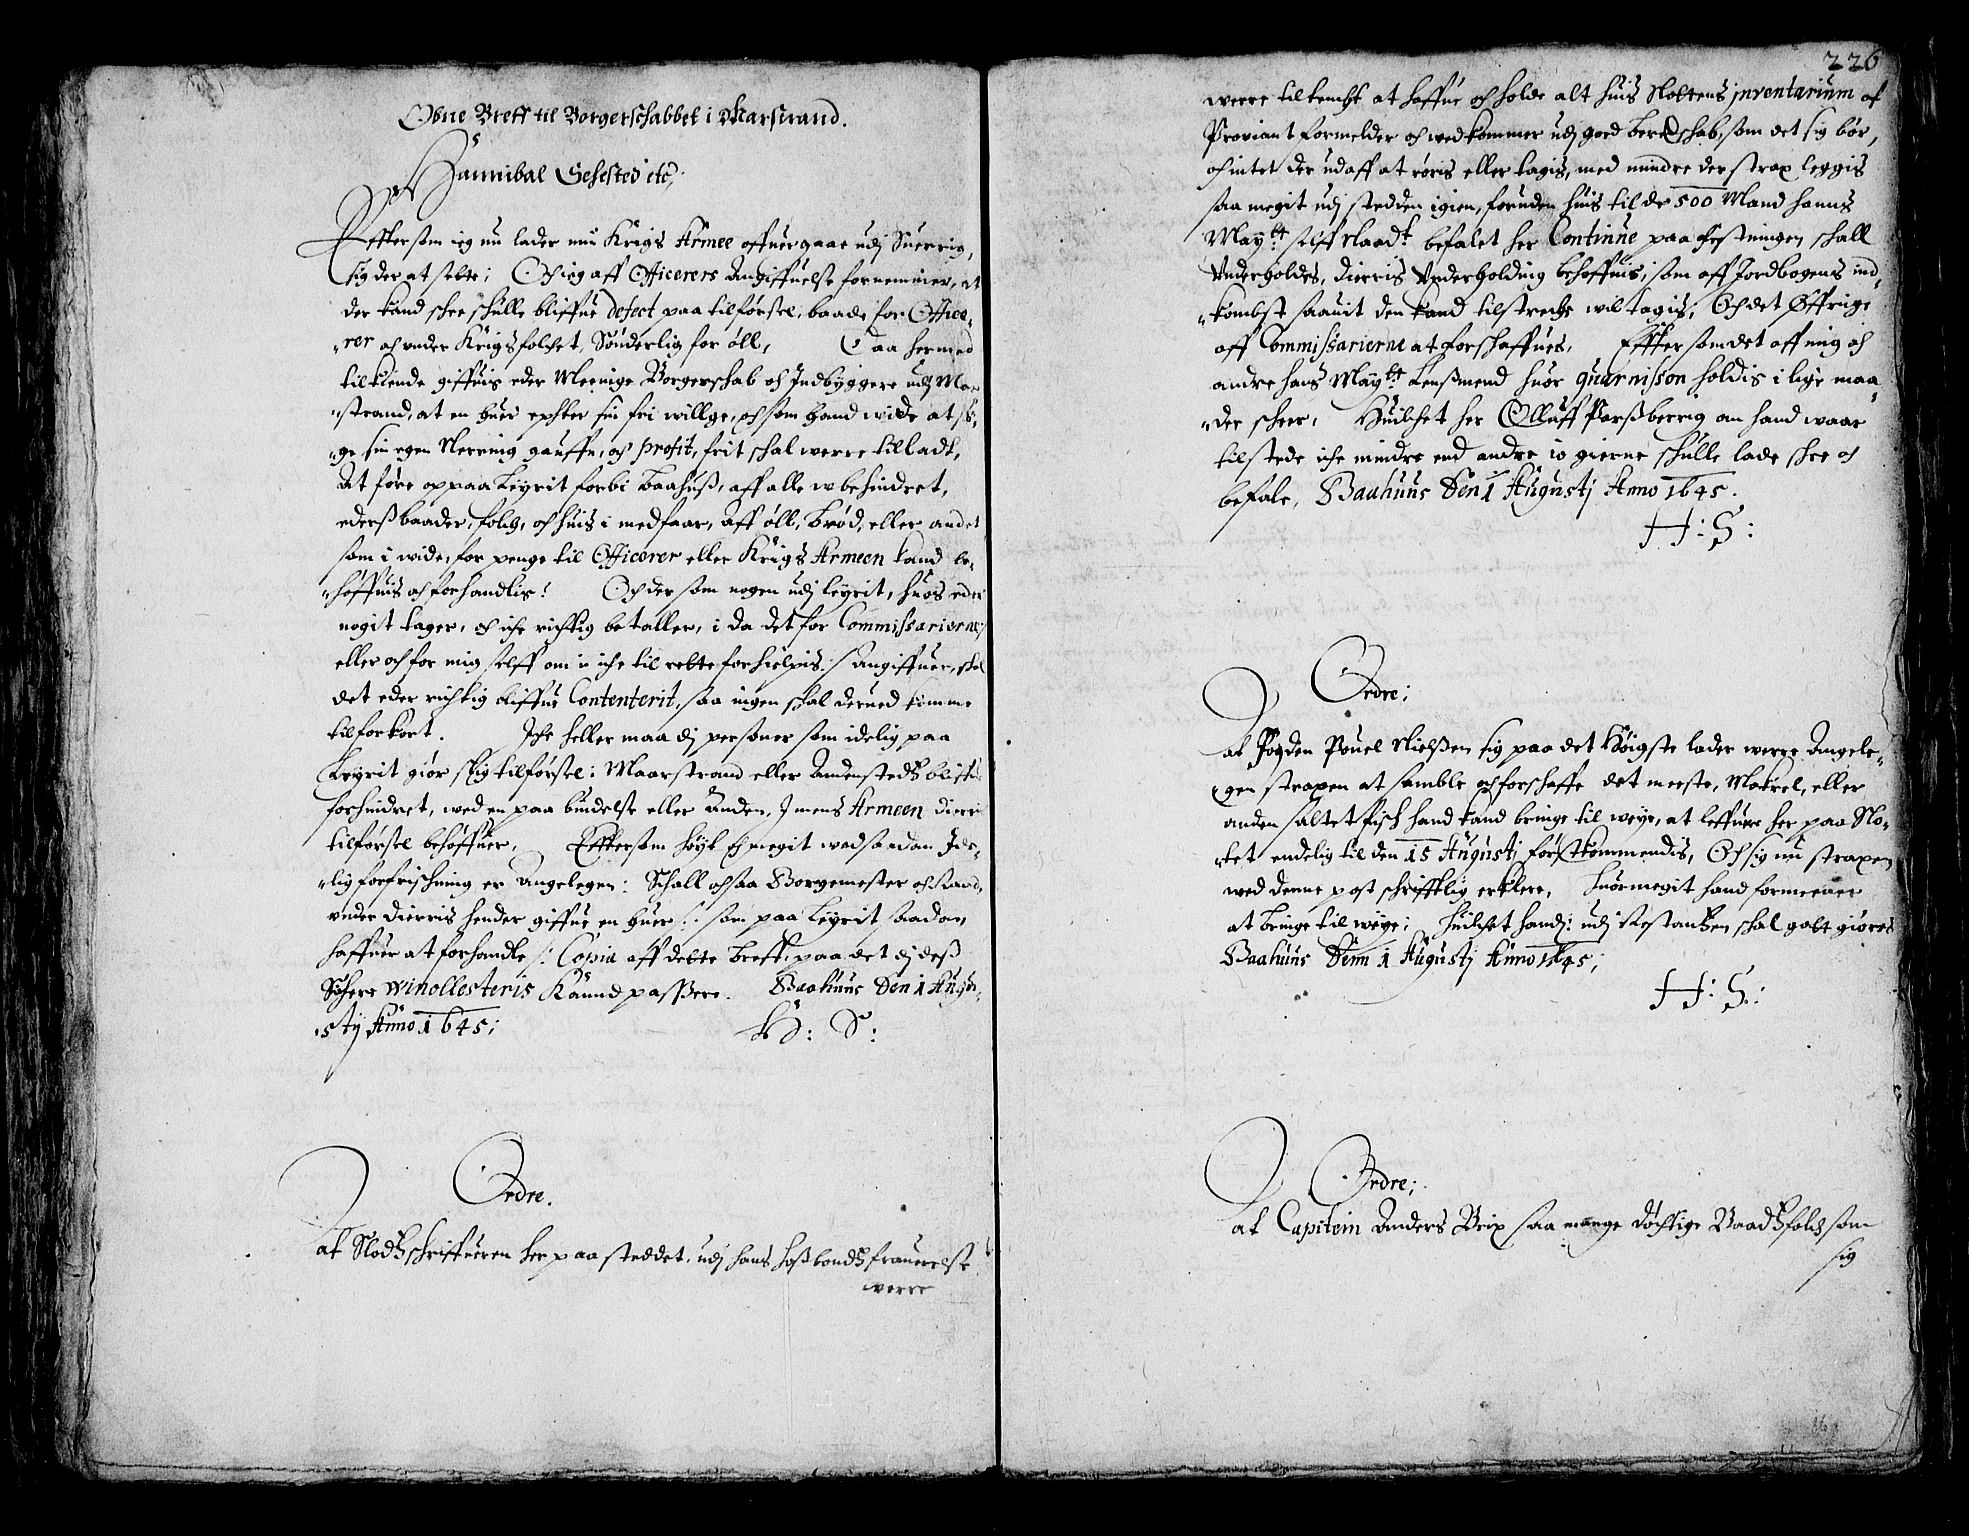 Obne Breff til Borgerschabbet i Marstrand.
Hannibal Sehested etc;
Effter som ieg nu lader min Krigs Armee offuer gaae udj Suerrig,
sig der at sette; Och ieg aff Officerers Angiffuelse fornemmer, at
der kand schee schulle bliffue defect paa tilførsel, baade for Office-
-rer och under Krigsfolchet, Sønderlig for øll, Daa hermed
tilkiende giffuis eder Meenige Borgerschab och Indbyggere udj Mar
-strand, at en huer ephter sin fri willge, och som hand wide at sø-
-ge sin egen Nerring gauffn, och profit, frit schal werre tilladt,
At føre op paa Leyrit forbi Baahuß, aff alle wbehindret,
ederß baader, folch, och huis i medfaar, Aff øll, brød, eller andet
som i wide, for penge til Officerer eller Krigs Armeen kand be-
-høffuis och forhandlis! Och der som nogen udj leyrit, huos eder
nogit tager, och iche richtig betaller, i da det for Commissarierne,
eller och for mig self om i iche til rette forhielpis :/ angiffuer, schal
det eder richtig bliffue Contenterit, saa ingen schal derued komme
til forkort. Iche heller maa dj personer som idelig paa
Leyrit giør slig tilførsel i Maarstrand eller Andenstedtz bliffue
forhindret, wed en paa bindelse eller Anden, Imens Armeen dieris
tilførsel behøffuer, Effter som høyt och megit wed saadan Ide-
-lig forfrischning er Angelegen: Schall ochsaa Borgemester och Raad,
under dierris hender giffue en huer /: som paa Leyrit saadan
haffuer at forhandle :/ Copia aff dette breff, paa det dj deß
Sichere winollesteris Kannd passere. Baahuus Den 1 Augu-
-stij Anno 1645;
H: S:
Ordre.
at Slodtzschriffueren her paa steddet, udj hans hoßbondtz frauerelse
werre
226
werre tiltencht at haffue och holde alt huis Slottens inventarium af
Proviant formelder och wedkommer udj goed beredschab, som det sig bør,
och intet der udaff at røris eller tagis, med mindre der strax leggis
saa megit udj stedden igien, foruden huis til de 500 Mand hanns
Maytt self naadt befalet her Continue paa festningen schall
Underholdes, dierris Underholding behøffuis, som aff Jordbogens ind-
-kombst saauit den kand tilstreche wil tagis, Och det Øffrige
aff Commissarierne at forschaffues. Effter som det aff mig och
andre hans Maytts Lenßmend huor guarnisson holdis i lige maa-
-der scheer, Huilchet her Olluff Parßberrig om hand waar
tilstede iche mindre end andre io gierne schulle lade schee och
befale, Baahuus Den 1 Augustj Anno 1645.
H: S:
Ordre;
at Fogden Pouel Nielßen sig paa det Høigste lader werre Angele-
gen straxen at samble och forschaffe det meeste, Makrel, eller
anden saltet fisch hand kand bringe til weye, at leffuere her paa Slo-
-tet endelig til den 15 Augustj førstkommendis, Och sig nu straxen
wed denne post schrifftlig erklere, huormegit hand formeener
at bringe til weye; huilchet hand udj Restantzen schal godt giøres
Baahuus Denn 1 Augustj Anno 1645;
H: S:
Ordre;
at Capitein Anders Brix saa mange døchtige Baadtzfolch som
sig